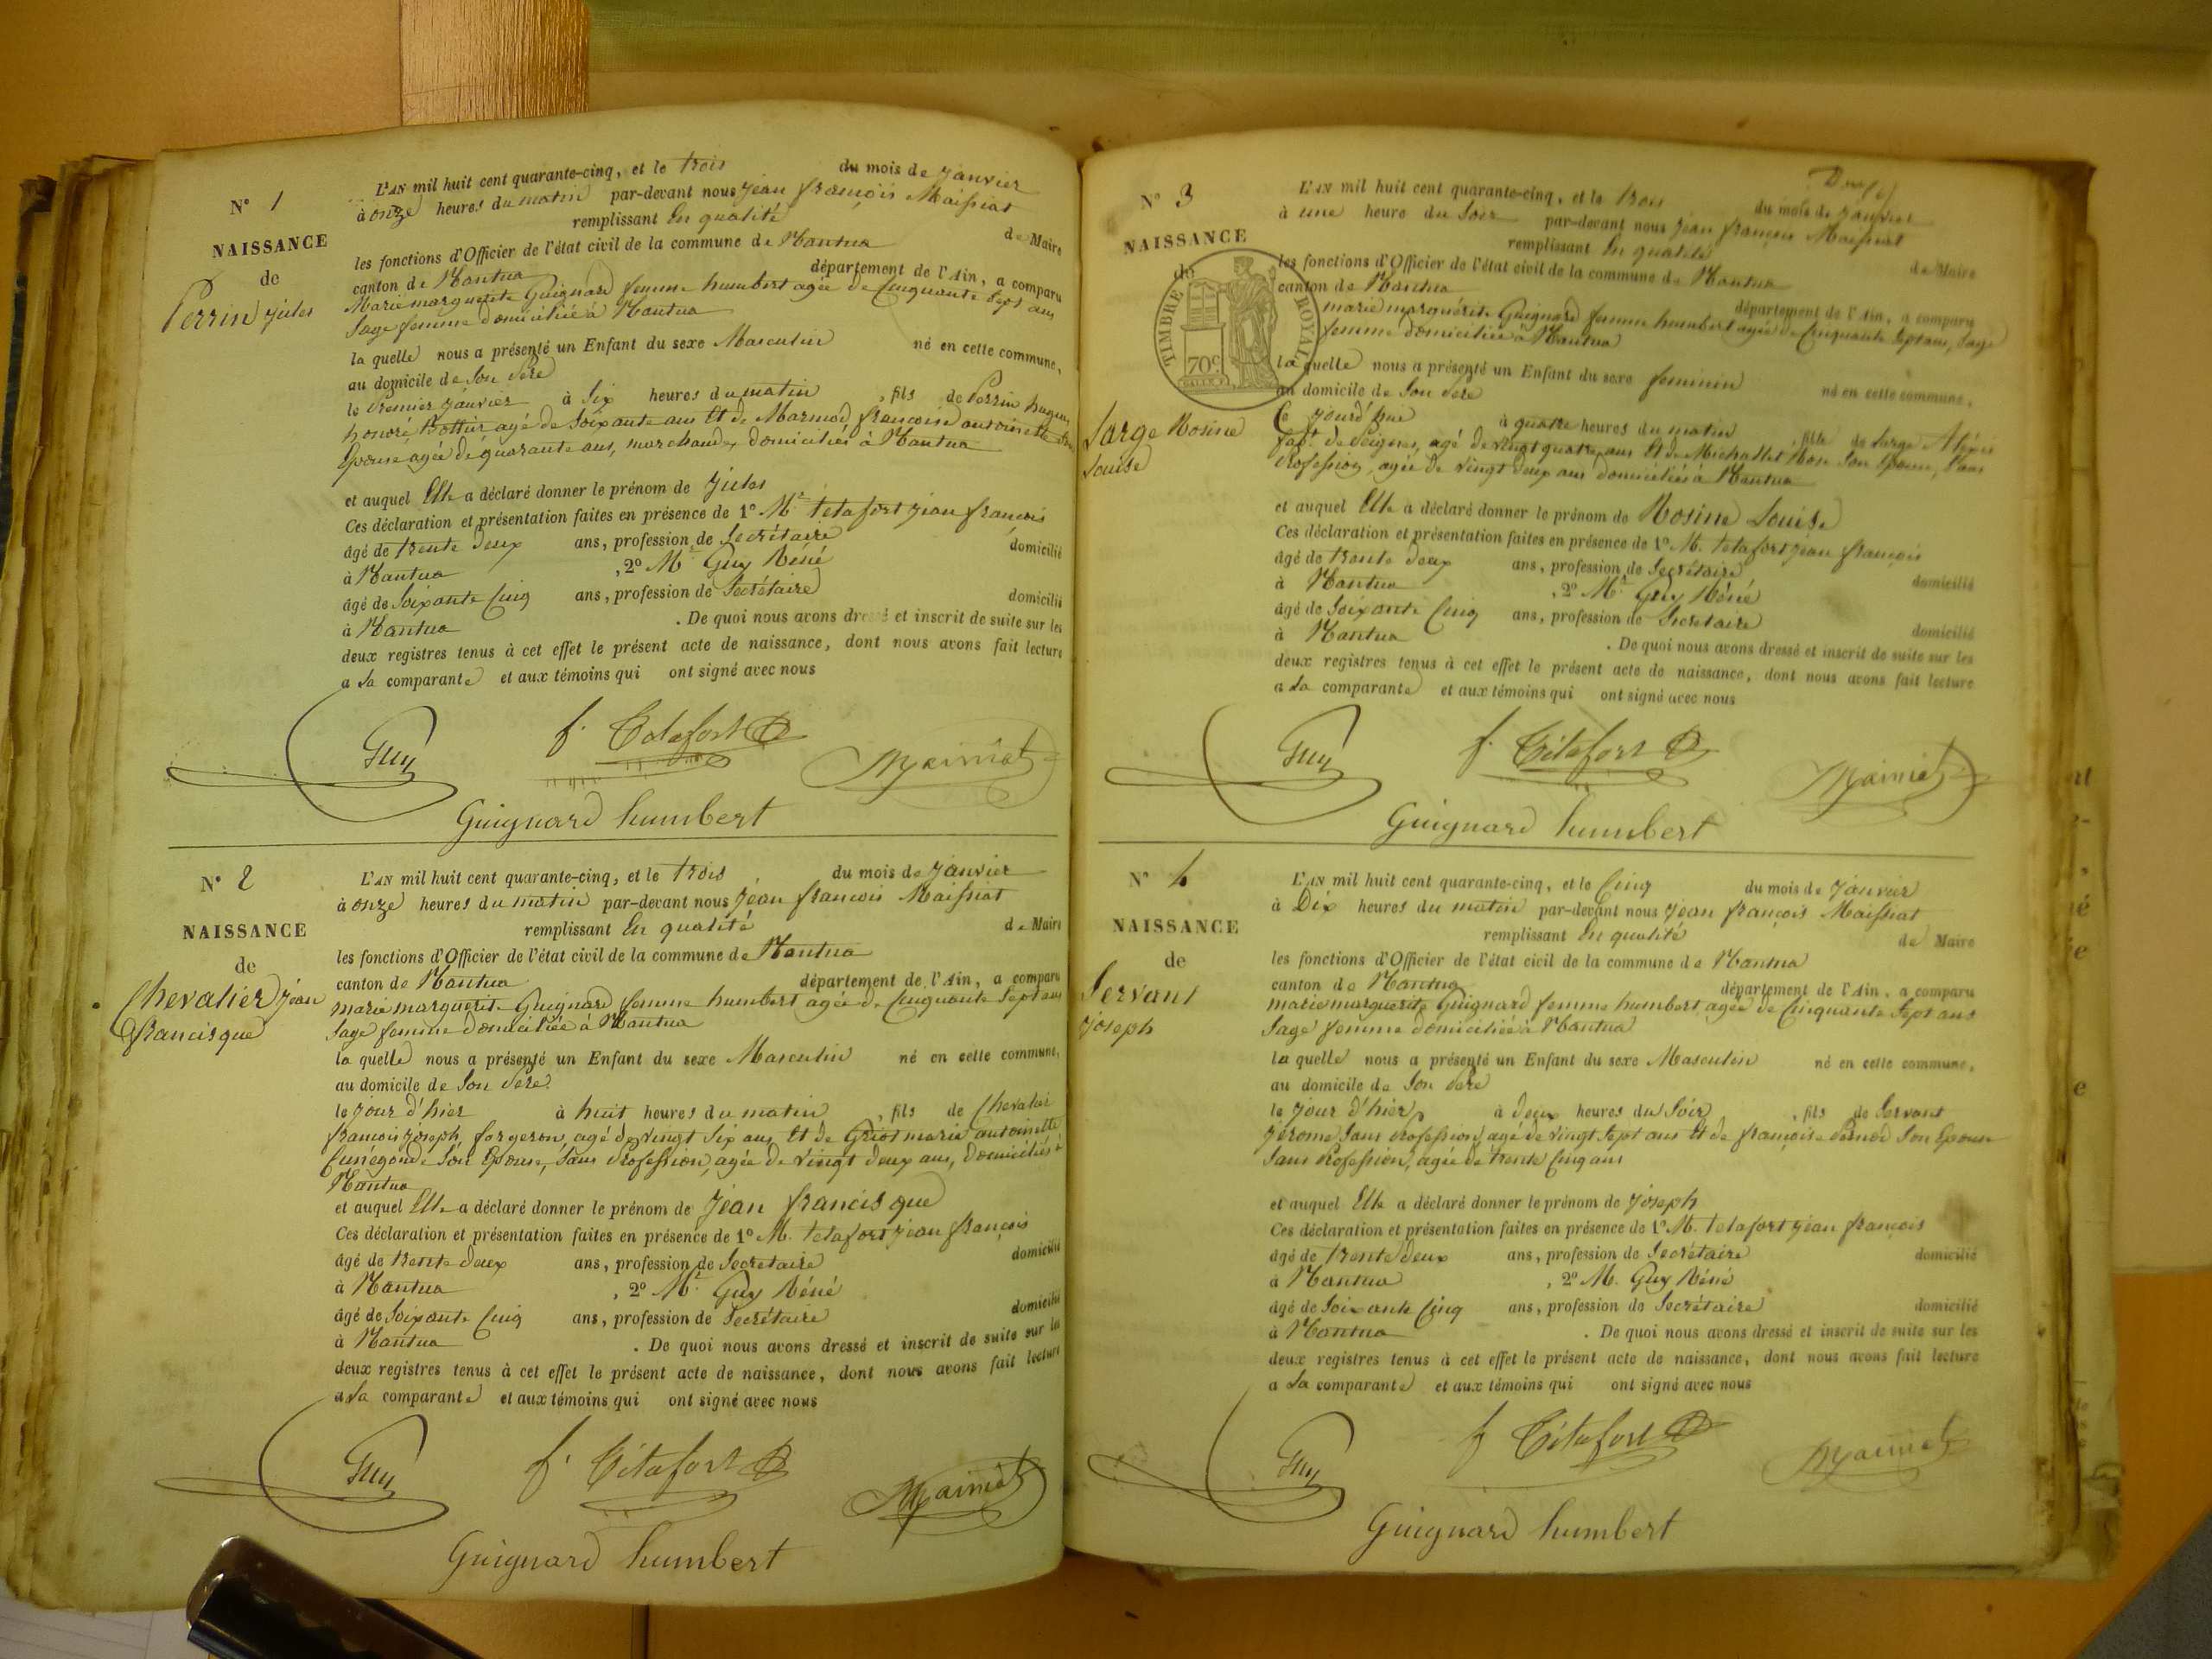 N° 1
NAISSANCE
de
Perrin jules
L'AN mil huit cent quarante-cinq, et le trois du mois de janvier
à onze heures du matin par-devant nous jean françois Maissiat
remplissant En qualité de Maire
les fonctions d'Officier de l'état civil de la commune de Nantua
canton de Nantua département de l'Ain, a comparu
Marie marguerite Guignard femme humbert agée de Cinquante Sept ans
Sage femme domiciliée à Nantua
la quelle nous a présenté un Enfant du sexe Masculin né en cette commune,
au domicile de Son Père
le Premier janvier à Six heures du matin, fils de Perrin hugues
honoré, agé de Soixante ans Et de Marmod françoise antoinette Son
Epouse agée de quarante ans, marchands, domiciliés à Nantua
et auquel Elle a déclaré donner le prénom de jules
Ces déclaration et présentation faites en présence de 1° Mr tetafort jean françois
âgé de trente deux ans, profession de Secrétaire domicilié
à Nantua, 2° Mr Guy Réné
âgé de Soixante Cinq ans, profession de Secrétaire domicilié
à Nantua. De quoi nous avons dressé et inscrit de suite sur les
deux registres tenus à cet effet le présent acte de naissance, dont nous avons fait lecture
a La comparante et aux témoins qui ont signé avec nous
Guy f. Tétafort Maissiat
Guignard humbert
N° 2
NAISSANCE
de
Chevalier jean
francisque
L'AN mil huit cent quarante-cinq, et le trois du mois de janvier
à onze heures du matin par-devant nous jean françois Maissiat
remplissant En qualité de Maire
les fonctions d'Officier de l'état civil de la commune de Nantua
canton de Nantua département de l'Ain, a comparu
marie marguerite Guignard femme humbert agée de Cinquante Sept ans
Sage femme domiciliée à Nantua
la quelle nous a présenté un Enfant du sexe Masculin né en cette commune,
au domicile de Son Père
le jour d'hier à huit heures du matin, fils de Chevalier
françois joseph, forgeron, agé de vingt Six ans Et de Griot marie antoinette
Cunégonde Son Epouse, Sans Profession, agée de vingt deux ans, domiciliés à
Nantua
et auquel Elle a déclaré donner le prénom de jean francisque
Ces déclaration et présentation faites en présence de 1° M. tetafort jean françois
âgé de trente deux ans, profession de Secrétaire domicilié
à Nantua, 2° Mr Guy Réné
âgé de Soixante Cinq ans, profession de Secrétaire domicilié
à Nantua. De quoi nous avons dressé et inscrit de suite sur les
deux registres tenus à cet effet le présent acte de naissance, dont nous avons fait lecture
a La comparante et aux témoins qui ont signé avec nous
Guy f. Tétafort Maissiat
Guignard humbert
N° 3
NAISSANCE
de
TIMBRE ROYAL
70c
Large Rosine
Louise
L'AN mil huit cent quarante-cinq, et le trois du mois de janvier
à une heure du Soir par-devant nous jean françois Maissiat
remplissant En qualité de Maire
les fonctions d'Officier de l'état civil de la commune de Nantua
canton de Nantua département de l'Ain, a comparu
marie marguérite Guignard femme humbert agée de Cinquante Sept ans, Sage
femme domiciliée à Nantua
la quelle nous a présenté un Enfant du sexe feminin né en cette commune,
au domicile de Son Père
Ce jourd'hui à quatre heures du matin, fille de Large Aléxis
fabt. de Peignes, agé de vingt quatre ans Et de Michallet Rose Son Epouse, Sans
Profession, agée de vingt deux ans domiciliés à Nantua
et auquel Elle a déclaré donner le prénom de Rosine Louise
Ces déclaration et présentation faites en présence de 1° M. tetafort jean françois
âgé de trente deux ans, profession de Secrétaire domicilié
à Nantua, 2° Mr Guy Réné
âgé de Soixante Cinq ans, profession de Secrétaire domicilié
à Nantua. De quoi nous avons dressé et inscrit de suite sur les
deux registres tenus à cet effet le présent acte de naissance, dont nous avons fait lecture
a La comparante et aux témoins qui ont signé avec nous
Guy f. Tétafort Maissiat
Guignard humbert
N° 4
NAISSANCE
de
Servant
joseph
L'AN mil huit cent quarante-cinq, et le Cinq du mois de janvier
à Dix heures du matin par-devant nous jean françois Maissiat
remplissant En qualité de Maire
les fonctions d'Officier de l'état civil de la commune de Nantua
canton de Nantua département de l'Ain, a comparu
marie marguerite Guignard femme humbert agée de Cinquante Sept ans
Sage femme domiciliée à Nantua
la quelle nous a présenté un Enfant du sexe Masculin né en cette commune,
au domicile de Son Père
le jour d'hier à deux heures du Soir, fils de Servant
jérome Sans Profession, agé de vingt Sept ans Et de françoise Son Epouse
Sans Profession, agée de trente Cinq ans
et auquel Elle a déclaré donner le prénom de joseph
Ces déclaration et présentation faites en présence de 1° M. tetafort jean françois
âgé de trente deux ans, profession de Secrétaire domicilié
à Nantua, 2° M. Guy Réné
âgé de Soixante Cinq ans, profession de Secrétaire domicilié
à Nantua. De quoi nous avons dressé et inscrit de suite sur les
deux registres tenus à cet effet le présent acte de naissance, dont nous avons fait lecture
a La comparante et aux témoins qui ont signé avec nous
Guy f Tétafort Maissiat
Guignard humbert